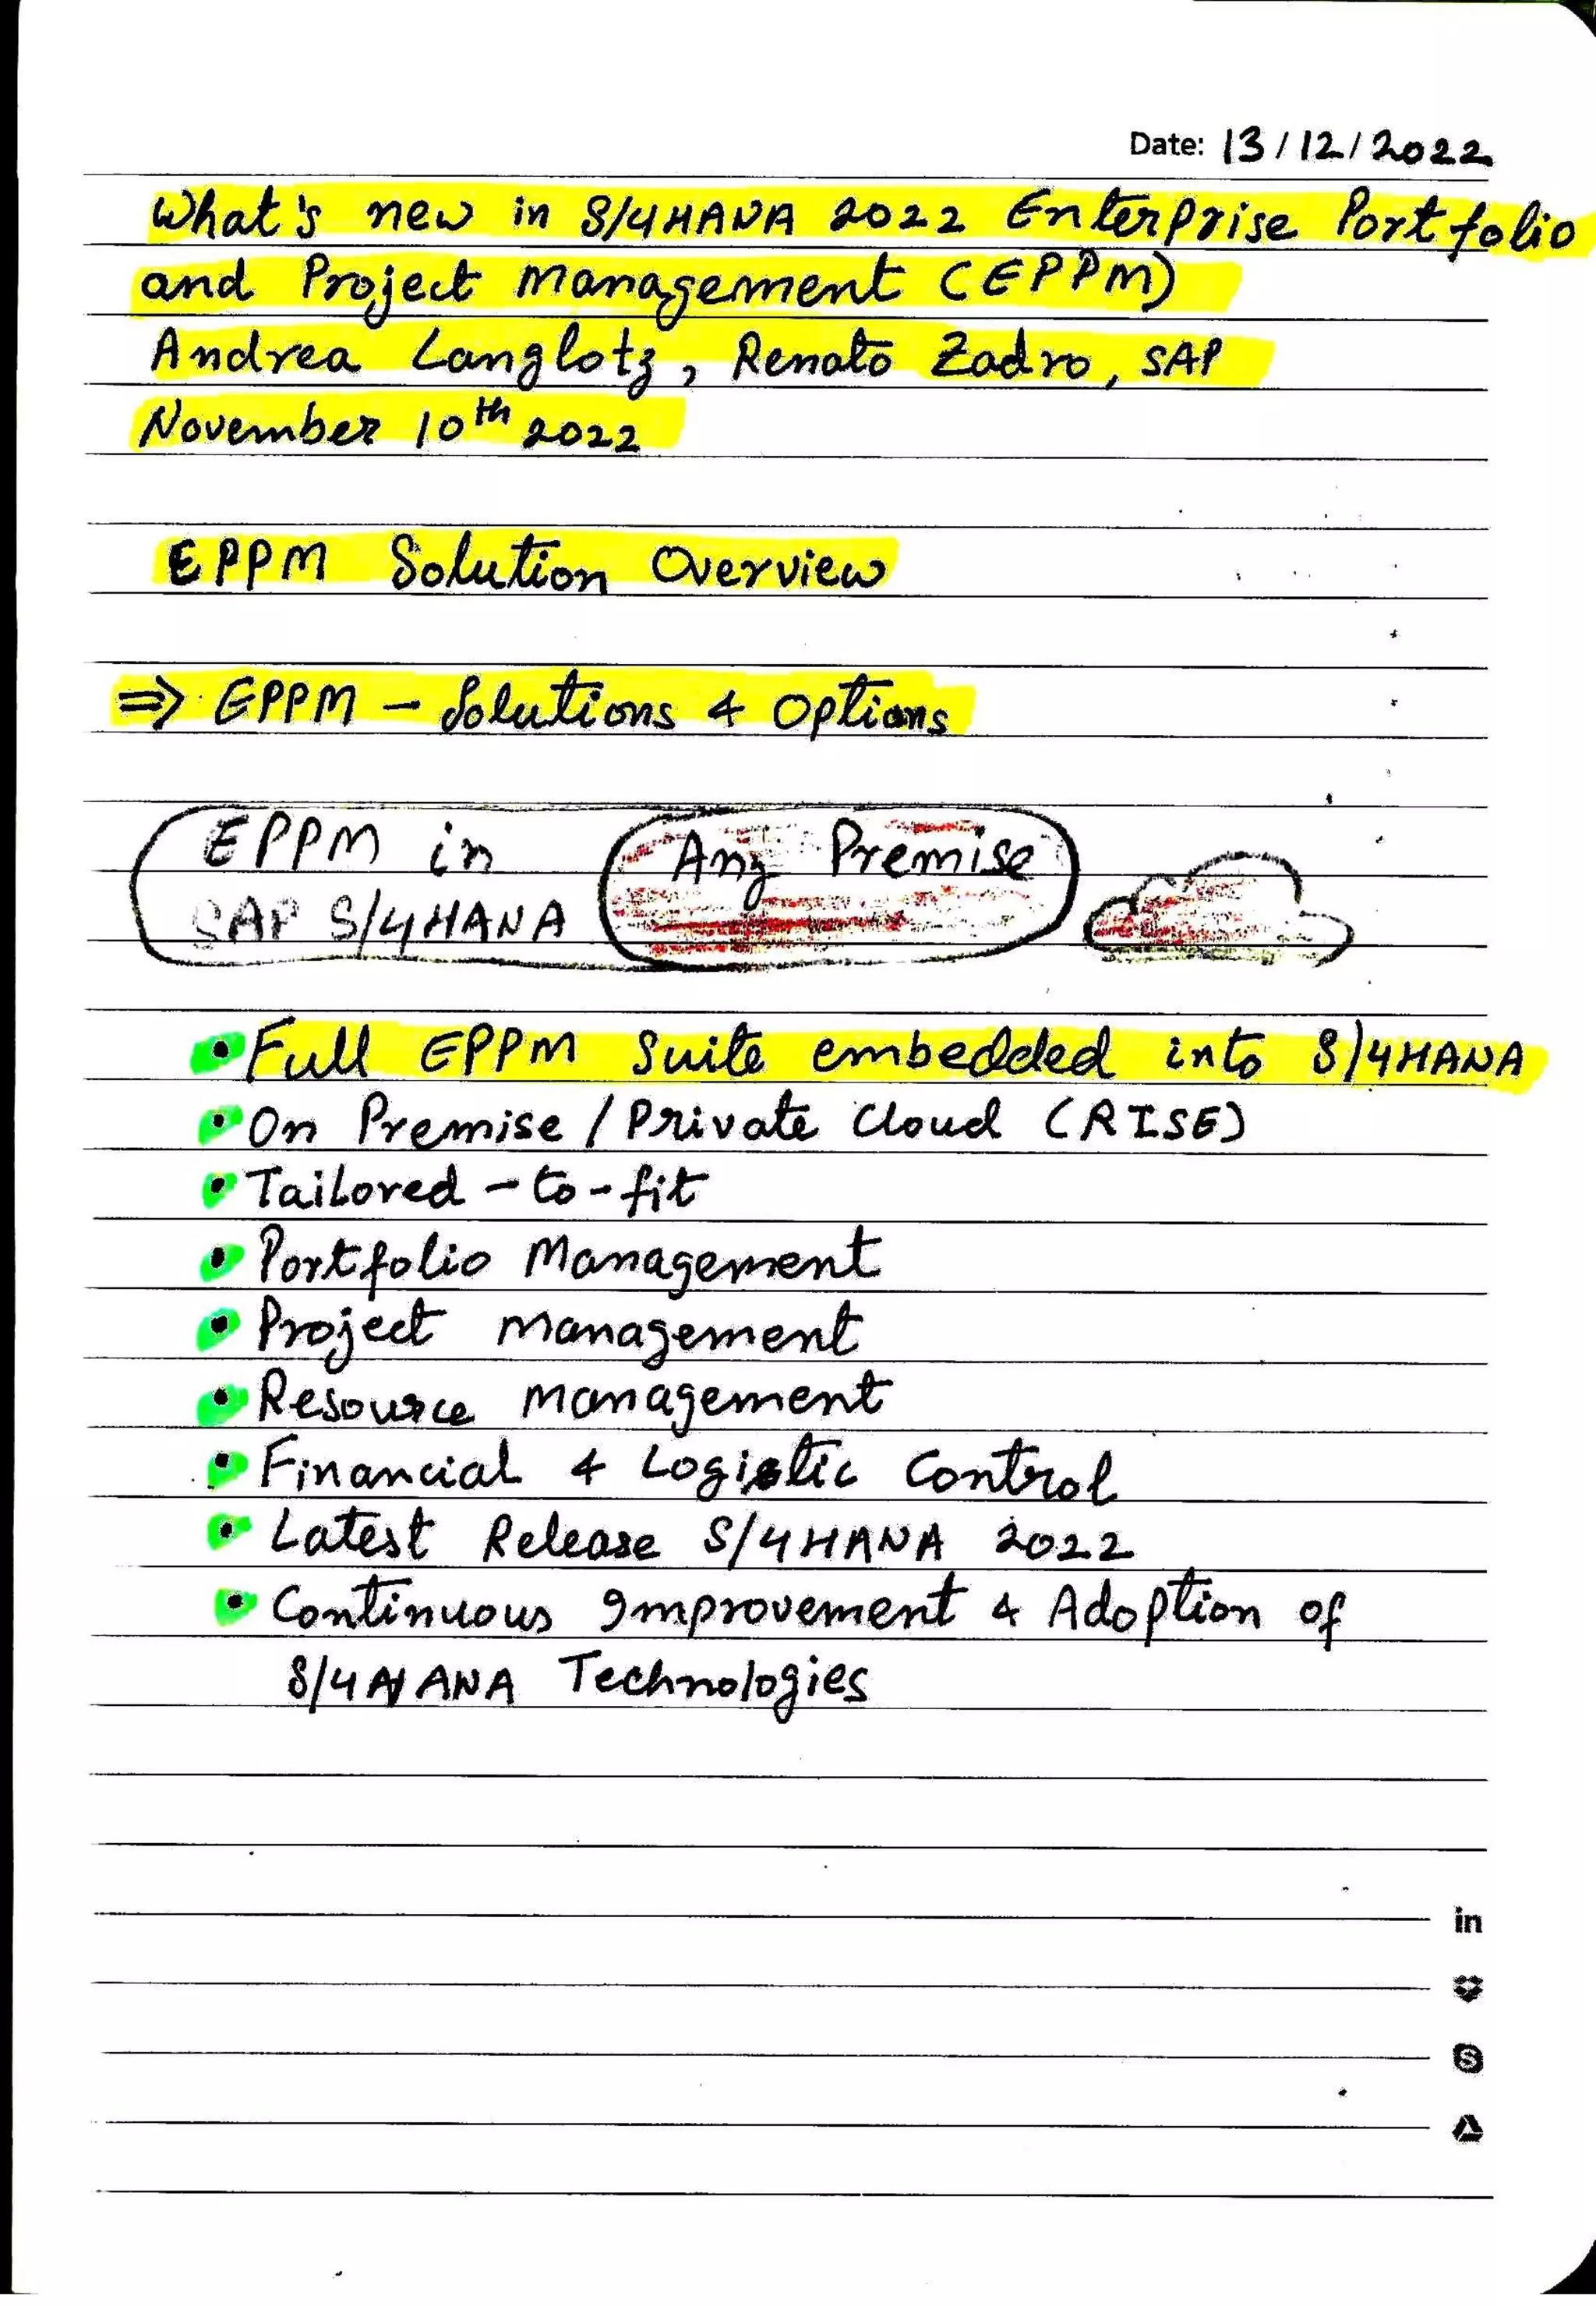 Date: 13/12/2022
What's new in S/4HANA 2022 Enterprise Portfolio
and Project Management (EPPM)
Andrea Langlotz, Renato Zadro, SAP
November 10th 2022
EPPM Solution Overview
⇒ EPPM - Solutions & Options
EPPM in
SAP S/4HANA
Any Premise
• Full EPPM Suite embedded into S/4HANA
• On Premise / Private Cloud (RISE)
• Tailored-to-fit
• Portfolio Management
• Project Management
• Resource Management
• Financial & Logistic Control
• Latest Release S/4HANA 2022
• Continuous Improvement & Adoption of
S/4HANA Technologies
in